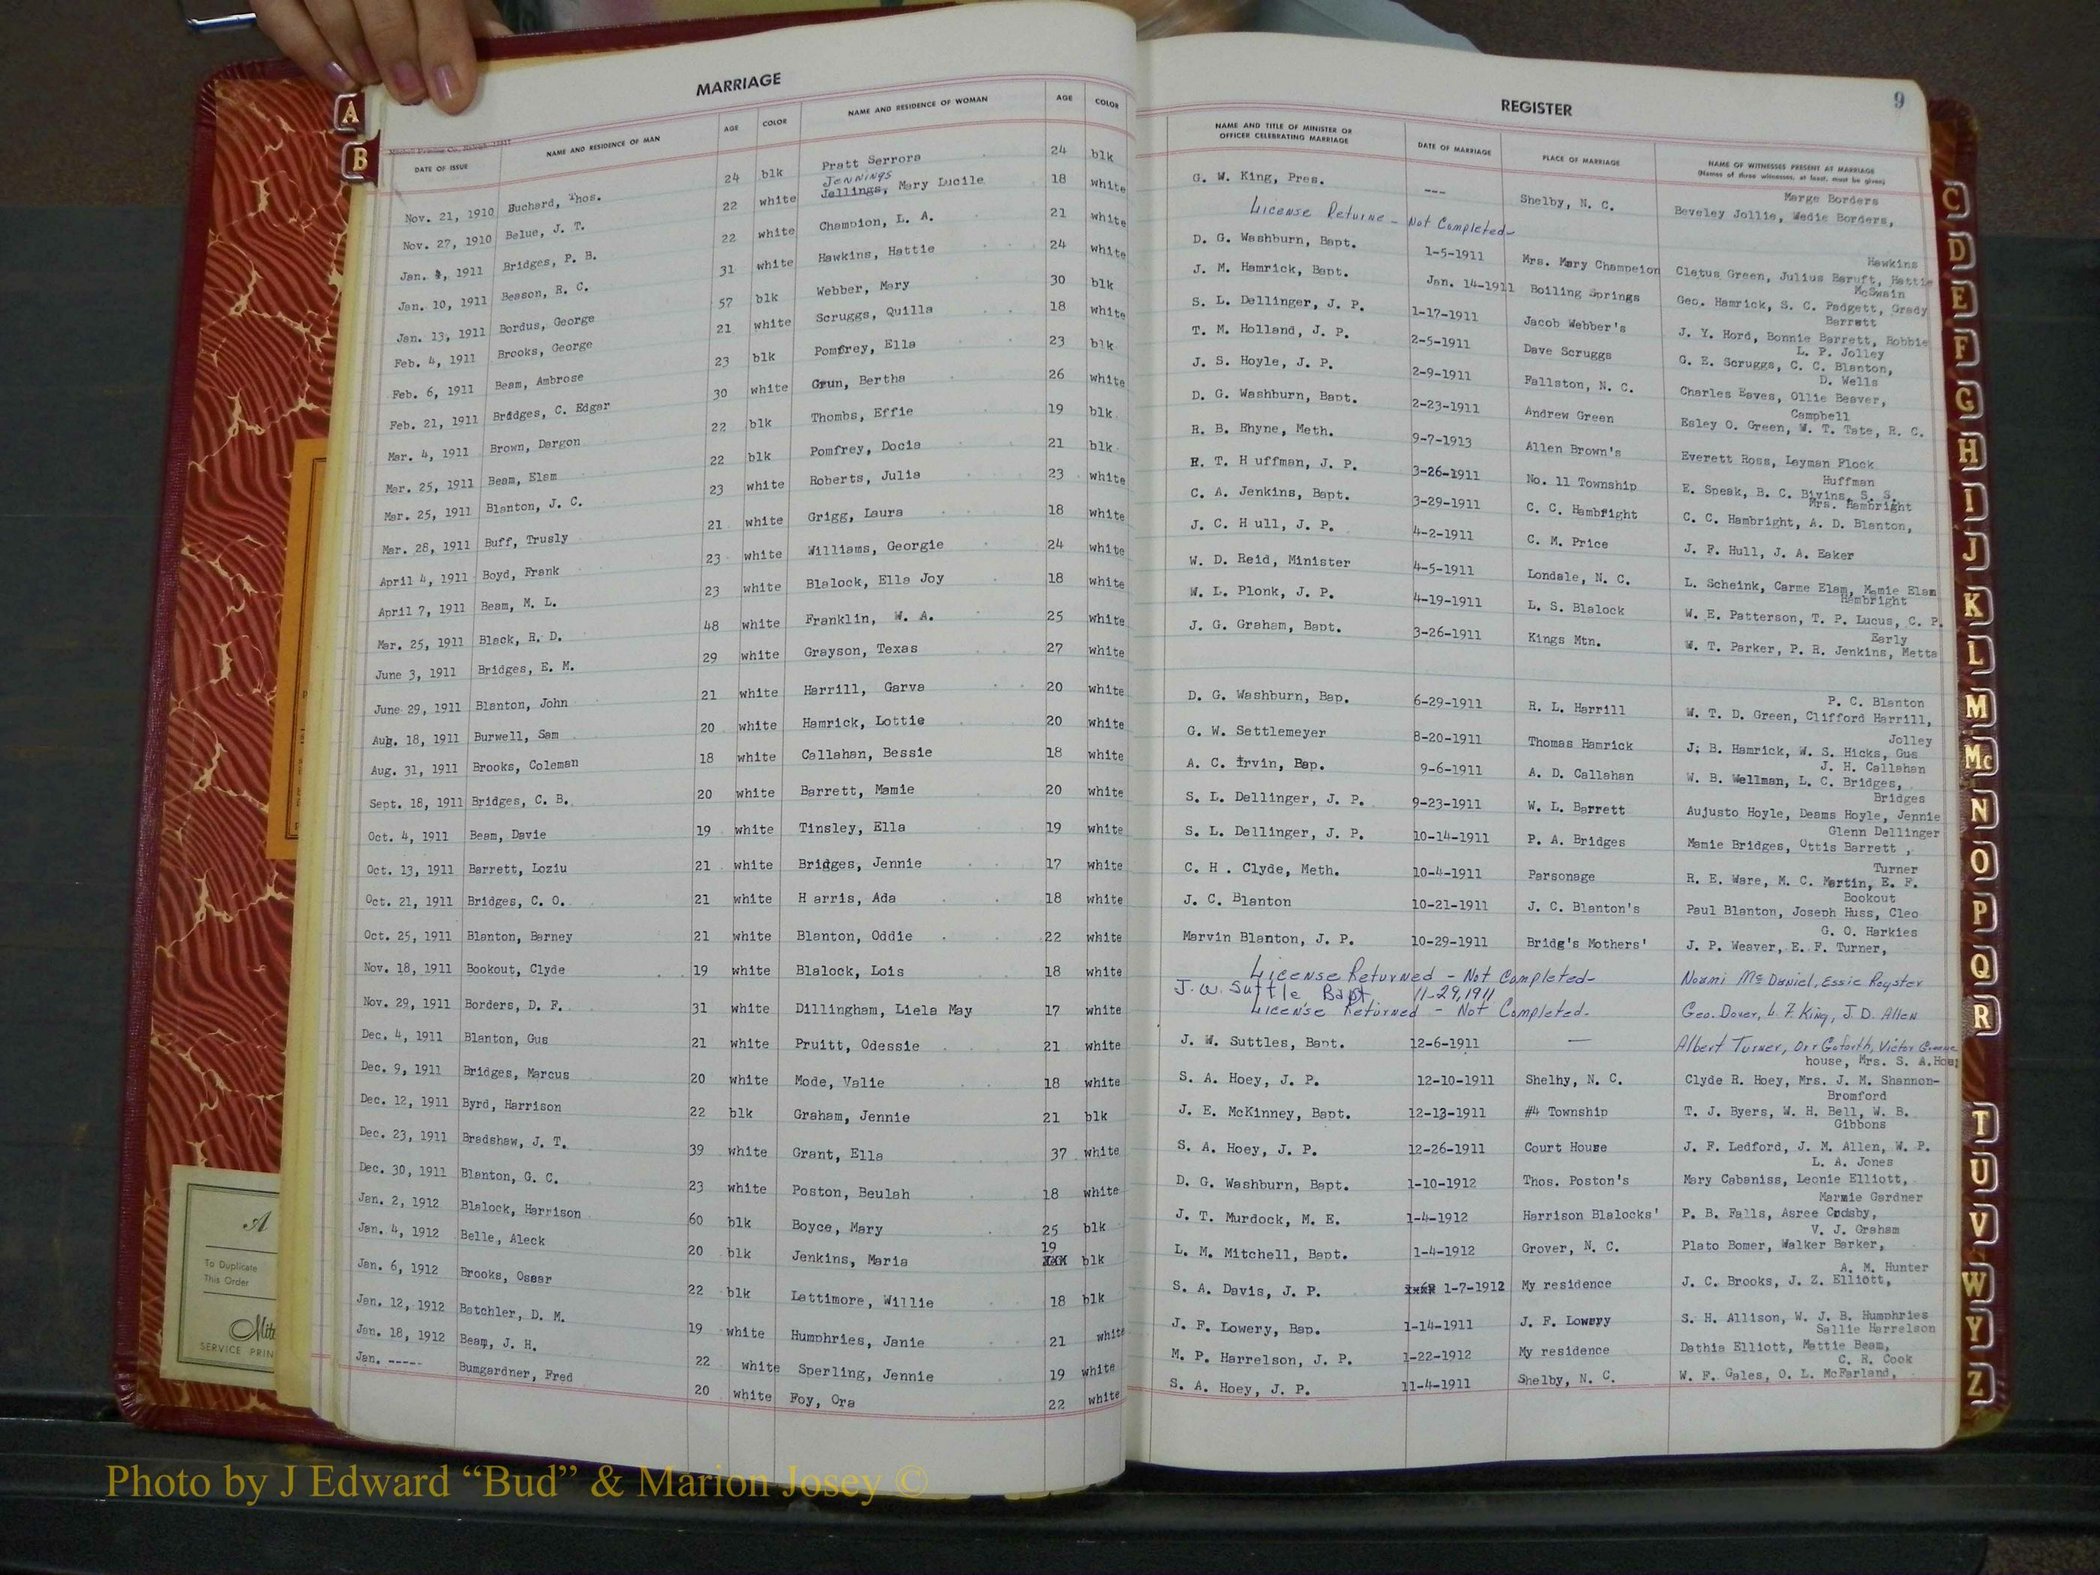 MARRIAGE
DATE OF ISSUE NAME AND RESIDENCE OF MAN AGE COLOR NAME AND RESIDENCE OF WOMAN AGE COLOR
Nov. 21, 1910 Buchard, Thos. 24 blk Pratt Serrora 24 blk
Jennings
Nov. 27, 1910 Belue, J. T. 22 white Jellings, Mary Lucile 18 white
Jan. 4, 1911 Bridges, P. B. 22 white Champion, L. A. 21 white
Jan. 10, 1911 Beason, R. C. 31 white Hawkins, Hattie 24 white
Jan. 13, 1911 Bordus, George 57 blk Webber, Mary 30 blk
Feb. 4, 1911 Brooks, George 21 white Scruggs, Quilla 18 white
Feb. 6, 1911 Beam, Ambrose 23 blk Pomfrey, Ella 23 blk
Feb. 21, 1911 Bridges, C. Edgar 30 white Grun, Bertha 26 white
Mar. 4, 1911 Brown, Dargon 22 blk Thombs, Effie 19 blk
Mar. 25, 1911 Beam, Elam 22 blk Pomfrey, Docia 21 blk
Mar. 25, 1911 Blanton, J. C. 23 white Roberts, Julia 23 white
Mar. 28, 1911 Buff, Trusly 21 white Grigg, Laura 18 white
April 4, 1911 Boyd, Frank 23 white Williams, Georgie 24 white
April 7, 1911 Beam, M. L. 23 white Blalock, Ella Joy 18 white
Mar. 25, 1911 Black, R. D. 48 white Franklin, W. A. 25 white
June 3, 1911 Bridges, E. M. 29 white Grayson, Texas 27 white
June 29, 1911 Blanton, John 21 white Harrill, Garva 20 white
Aug. 18, 1911 Burwell, Sam 20 white Hamrick, Lottie 20 white
Aug. 31, 1911 Brooks, Coleman 18 white Callahan, Bessie 18 white
Sept. 18, 1911 Bridges, C. B. 20 white Barrett, Mamie 20 white
Oct. 4, 1911 Beam, Davie 19 white Tinsley, Ella 19 white
Oct. 13, 1911 Barrett, Loziu 21 white Bridges, Jennie 17 white
Oct. 21, 1911 Bridges, C. O. 21 white H arris, Ada 18 white
Oct. 25, 1911 Blanton, Barney 21 white Blanton, Oddie 22 white
Nov. 18, 1911 Bookout, Clyde 19 white Blalock, Lois 18 white
Nov. 29, 1911 Borders, D. F. 31 white Dillingham, Liela May 17 white
Dec. 4, 1911 Blanton, Gus 21 white Pruitt, Odessie 21 white
Dec. 9, 1911 Bridges, Marcus 20 white Mode, Valie 18 white
Dec. 12, 1911 Byrd, Harrison 22 blk Graham, Jennie 21 blk
Dec. 23, 1911 Bradshaw, J. T. 39 white Grant, Ella 37 white
Dec. 30, 1911 Blanton, G. C. 23 white Poston, Beulah 18 white
Jan. 2, 1912 Blalock, Harrison 60 blk Boyce, Mary 25 blk
Jan. 4, 1912 Belle, Aleck 20 blk Jenkins, Maria 19 blk
Jan. 6, 1912 Brooks, Osear 22 blk Lattimore, Willie 18 blk
Jan. 12, 1912 Batchler, D. M. 19 white Humphries, Janie 21 white
Jan. 18, 1912 Beam, J. H. 22 white Sperling, Jennie 19 white
Jan. ----- Bumgardner, Fred 20 white Foy, Ora 22 white
REGISTER
9
NAME AND TITLE OF MINISTER OR OFFICER CELEBRATING MARRIAGE DATE OF MARRIAGE PLACE OF MARRIAGE NAME OF WITNESSES PRESENT AT MARRIAGE
(Names of three witnesses, at least, must be given)
Marge Borders
G. W. King, Pres. --- Shelby, N. C. Beveley Jollie, Wedie Borders,
License Returne - Not Completed-
Hawkins
D. G. Washburn, Bapt. 1-5-1911 Mrs. Mary Champeion Cletus Green, Julius Baruft, Hattie
McSwain
J. M. Hamrick, Bapt. Jan. 14-1911 Boiling Springs Geo. Hamrick, S. C. Padgett, Grady
Barrett
S. L. Dellinger, J. P. 1-17-1911 Jacob Webber's J. Y. Hord, Bonnie Barrett, Robbie
L. P. Jolley
T. M. Holland, J. P. 2-5-1911 Dave Scruggs G. E. Scruggs, C. C. Blanton,
D. Wells
J. S. Hoyle, J. P. 2-9-1911 Fallston, N. C. Charles Eaves, Ollie Beaver,
Campbell
D. G. Washburn, Bapt. 2-23-1911 Andrew Green Esley O. Green, W. T. Tate, R. C.
R. B. Rhyne, Meth. 9-7-1913 Allen Brown's Everett Ross, Layman Flock
Huffman
E. T. H uffman, J. P. 3-26-1911 No. 11 Township E. Speak, B. C. Bivins, S. S.
Mrs. Hambright
C. A. Jenkins, Bapt. 3-29-1911 C. C. Hambright C. C. Hambright, A. D. Blanton,
J. C. H ull, J. P. 4-2-1911 C. M. Price J. F. Hull, J. A. Eaker
W. D. Reid, Minister 4-5-1911 Londale, N. C. L. Scheink, Carme Elam, Mamie Elam
Hambright
W. L. Plonk, J. P. 4-19-1911 L. S. Blalock W. E. Patterson, T. P. Lucus, C. P.
Early
J. G. Graham, Bapt. 3-26-1911 Kings Mtn. W. T. Parker, P. R. Jenkins, Metta
P. C. Blanton
D. G. Washburn, Bap. 6-29-1911 R. L. Harrill W. T. D. Green, Clifford Harrill,
Jolley
G. W. Settlemeyer 8-20-1911 Thomas Hamrick J. B. Hamrick, W. S. Hicks, Gus
J. H. Callahan
A. C. Irvin, Bap. 9-6-1911 A. D. Callahan W. B. Wellman, L. C. Bridges,
Bridges
S. L. Dellinger, J. P. 9-23-1911 W. L. Barrett Aujusto Hoyle, Deams Hoyle, Jennie
Glenn Dellinger
S. L. Dellinger, J. P. 10-14-1911 P. A. Bridges Mamie Bridges, Ottis Barrett ,
Turner
C. H . Clyde, Meth. 10-4-1911 Parsonage R. E. Ware, M. C. Martin, E. F.
Bookout
J. C. Blanton 10-21-1911 J. C. Blanton's Paul Blanton, Joseph Huss, Cleo
G. O. Harkies
Marvin Blanton, J. P. 10-29-1911 Bridg's Mothers' J. P. Weaver, E. F. Turner,
License Returned - Not Completed- Noami McDaniel, Essie Royster
J. W. Suttle, Bapt. 11-29, 1911
License Returned - Not Completed- Geo. Dover, L. F. King, J. D. Allen
J. W. Suttles, Bapt. 12-6-1911 — Albert Turner, Orr Goforth, Victor Greene
house, Mrs. S. A. Hoey
S. A. Hoey, J. P. 12-10-1911 Shelby, N. C. Clyde R. Hoey, Mrs. J. M. Shannon-
Bromford
J. E. McKinney, Bapt. 12-13-1911 #4 Township T. J. Byers, W. H. Bell, W. B.
Gibbons
S. A. Hoey, J. P. 12-26-1911 Court House J. F. Ledford, J. M. Allen, W. P.
L. A. Jones
D. G. Washburn, Bapt. 1-10-1912 Thos. Poston's Mary Cabaniss, Leonie Elliott,
Marmie Gardner
J. T. Murdock, M. E. 1-4-1912 Harrison Blalocks' P. B. Falls, Asree Crosby,
V. J. Graham
L. M. Mitchell, Bapt. 1-4-1912 Grover, N. C. Plato Bomer, Walker Barker,
A. M. Hunter
S. A. Davis, J. P. 1-7-1912 My residence J. C. Brooks, J. Z. Elliott,
J. F. Lowery, Bap. 1-14-1911 J. F. Lowery S. H. Allison, W. J. B. Humphries
Sallie Harrelson
M. P. Harrelson, J. P. 1-22-1912 My residence Dathia Elliott, Mattie Beam,
C. R. Cook
S. A. Hoey, J. P. 11-4-1911 Shelby, N. C. W. F. Gales, O. L. McFarland,
A
B
C
D
E
F
G
H
I
J
K
L
M
Mc
N
O
P
Q
R
T
U
V
W
Y
Z
A
To Duplicate
This Order
SERVICE PRIN
Photo by J Edward “Bud” & Marion Josey ©